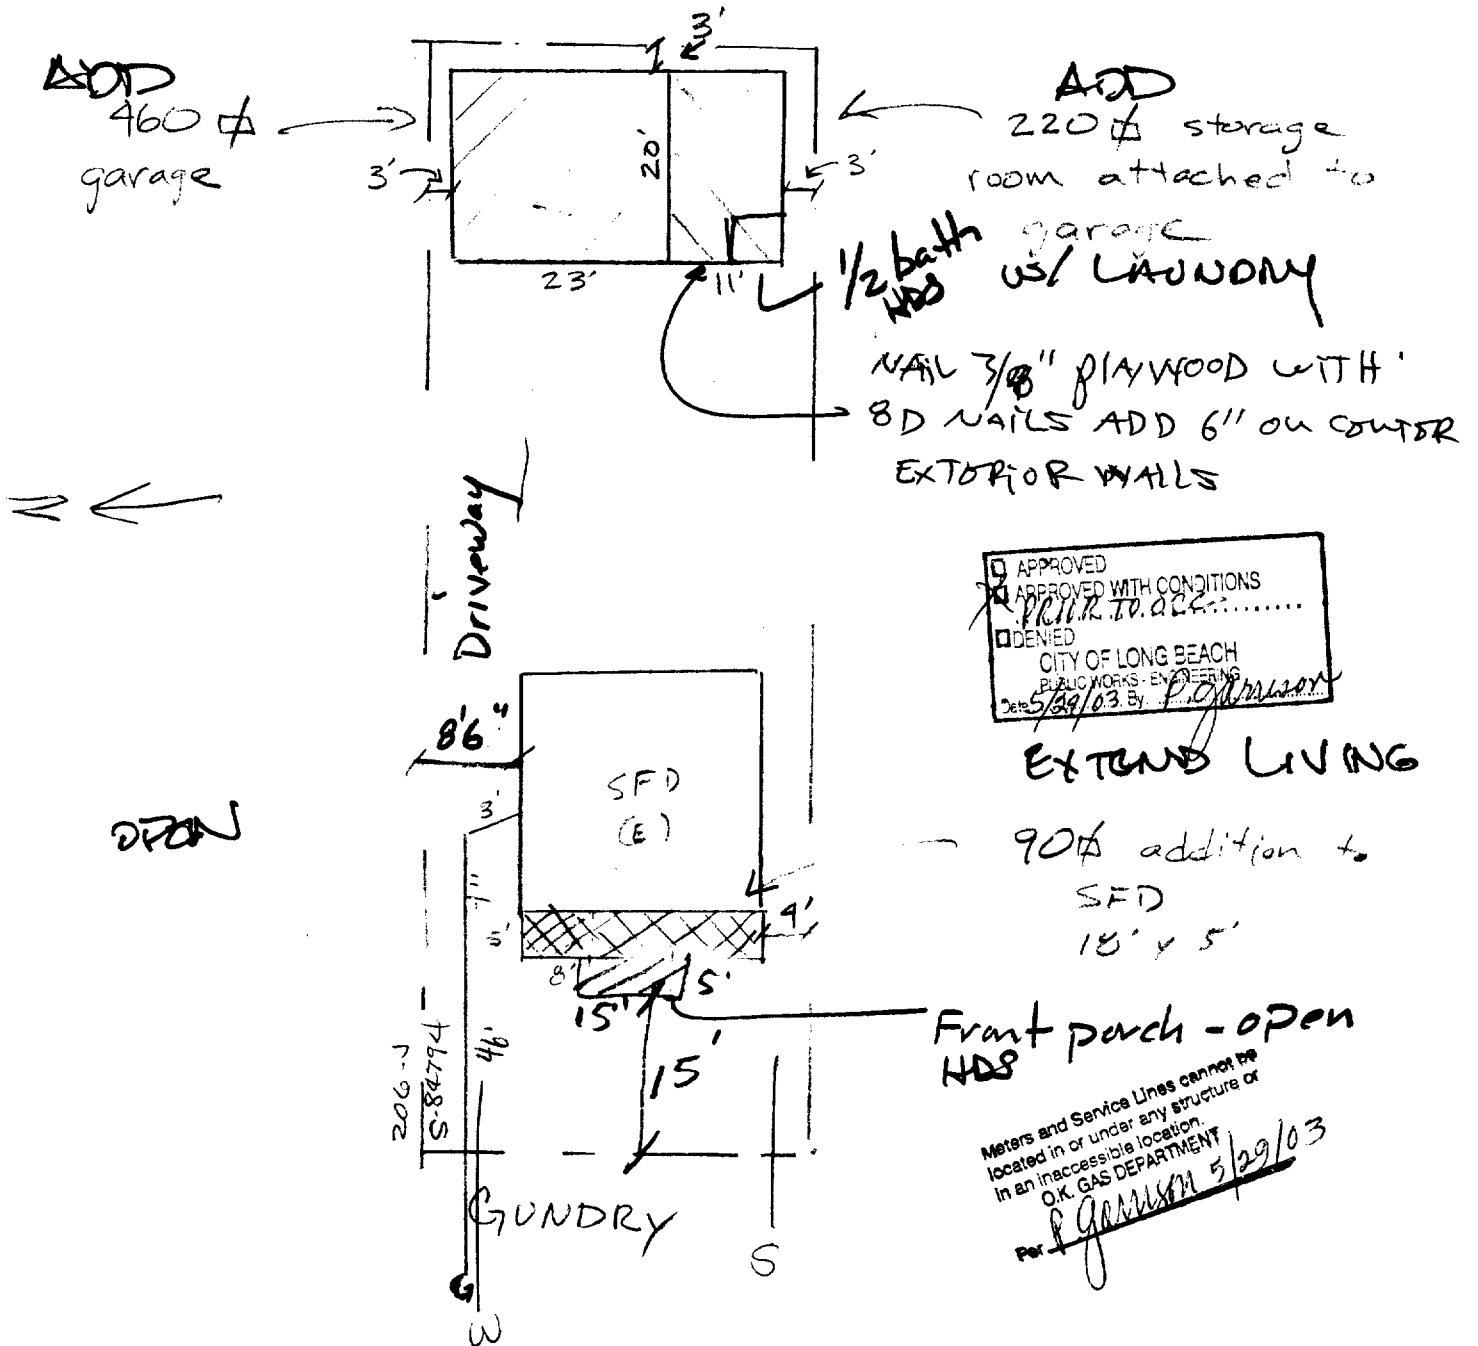 3'
ADD
460 ⏍
garage
3'
20'
23'
11'
3'
ADD
220 ⏍ storage
room attached to
garage
w/ LAUNDRY
1/2 bath
HDS
NAIL 3/8" PLAYWOOD WITH
8D NAILS ADD 6" ON CONTOR
EXTORIOR WALLS
N
Driveway
APPROVED
APPROVED WITH CONDITIONS
PRIOR TO OCC
DENIED
CITY OF LONG BEACH
PUBLIC WORKS - ENGINEERING
Date 5/29/03 By P. Garrison
EXTEND LIVING
8'6"
SFD
(E)
OPEN
3'
90 ⏍ addition to
SFD
18' x 5'
5'
4'
8'
15'
5'
15'
46'
206-J
S-84794
Front porch - open
HDS
Meters and Service Lines cannot be
located in or under any structure or
in an inaccessible location.
O.K. GAS DEPARTMENT
Per P Garrison 5/29/03
GUNDRY
G
W
S